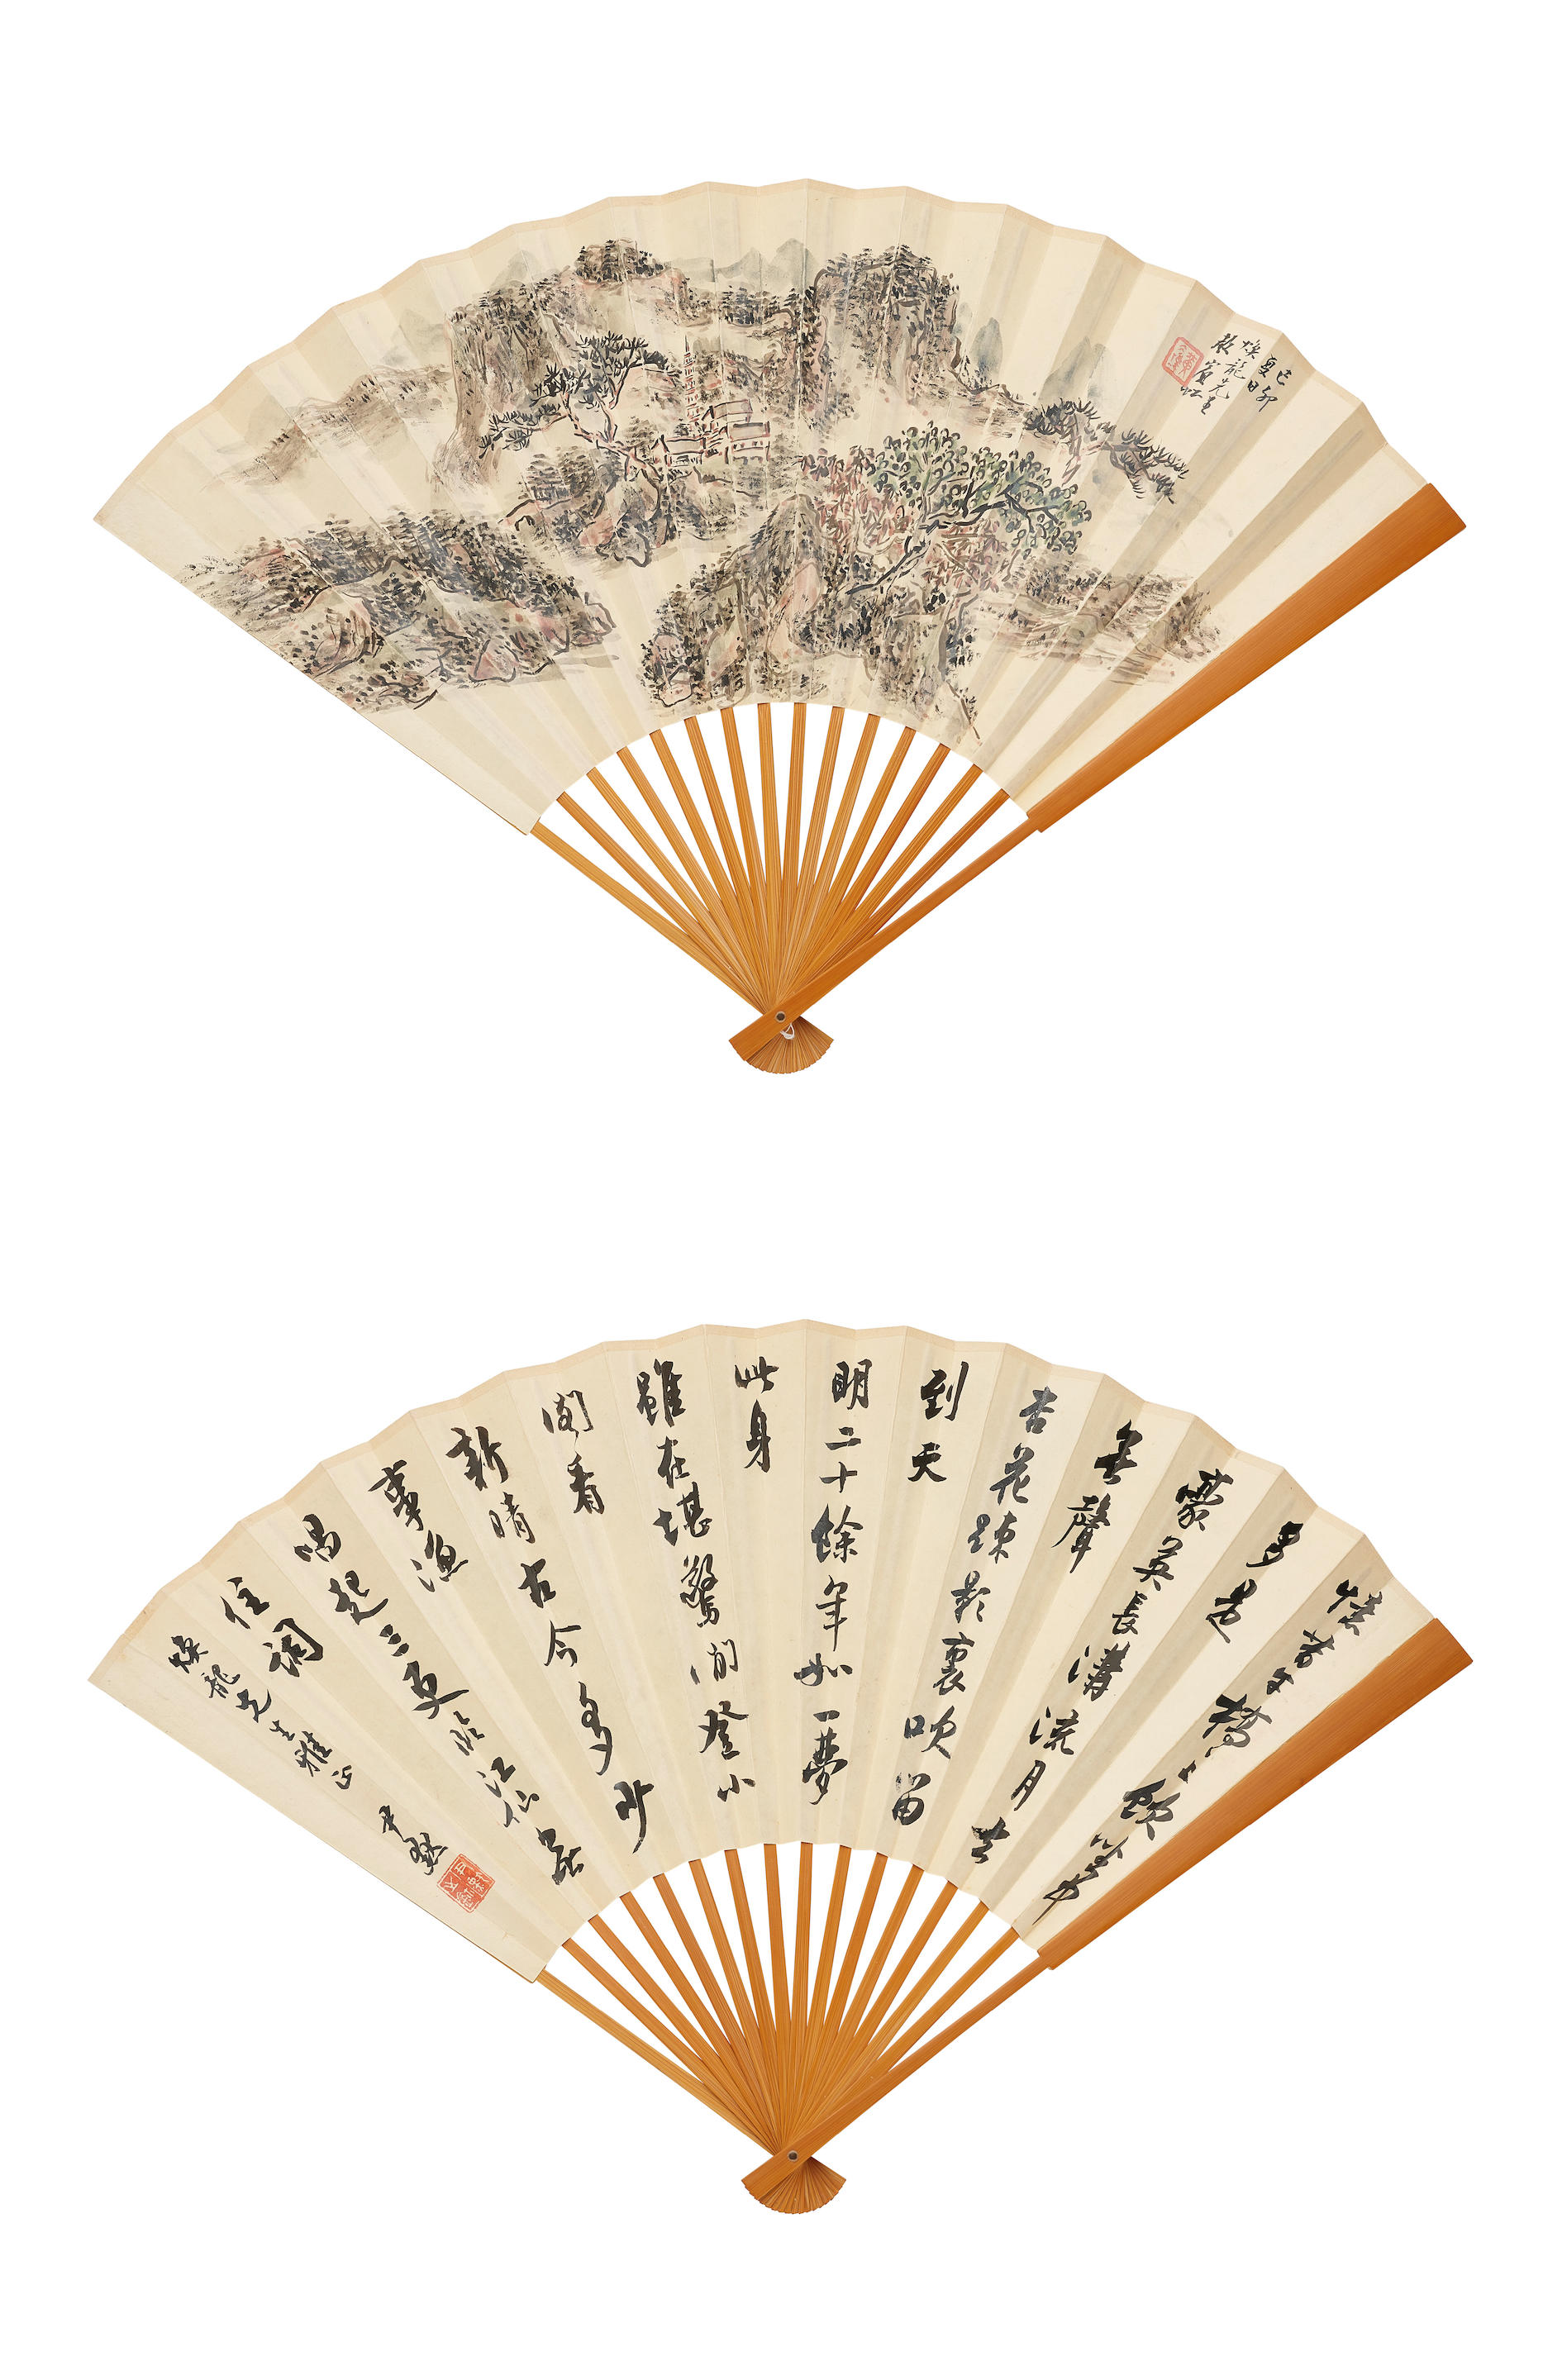 己卯
夏日
煥龍先生
賓虹
憶昔午橋々上飲坐中
多是
豪英長溝流月去
無聲
杏花疎影裏吹笛
到天
明二十餘年如一夢
此身
雖在堪驚閒登小
閣看
新晴古今多少
事漁
唱起三更臨江仙無
住詞
煥龍先生雅正
尹默